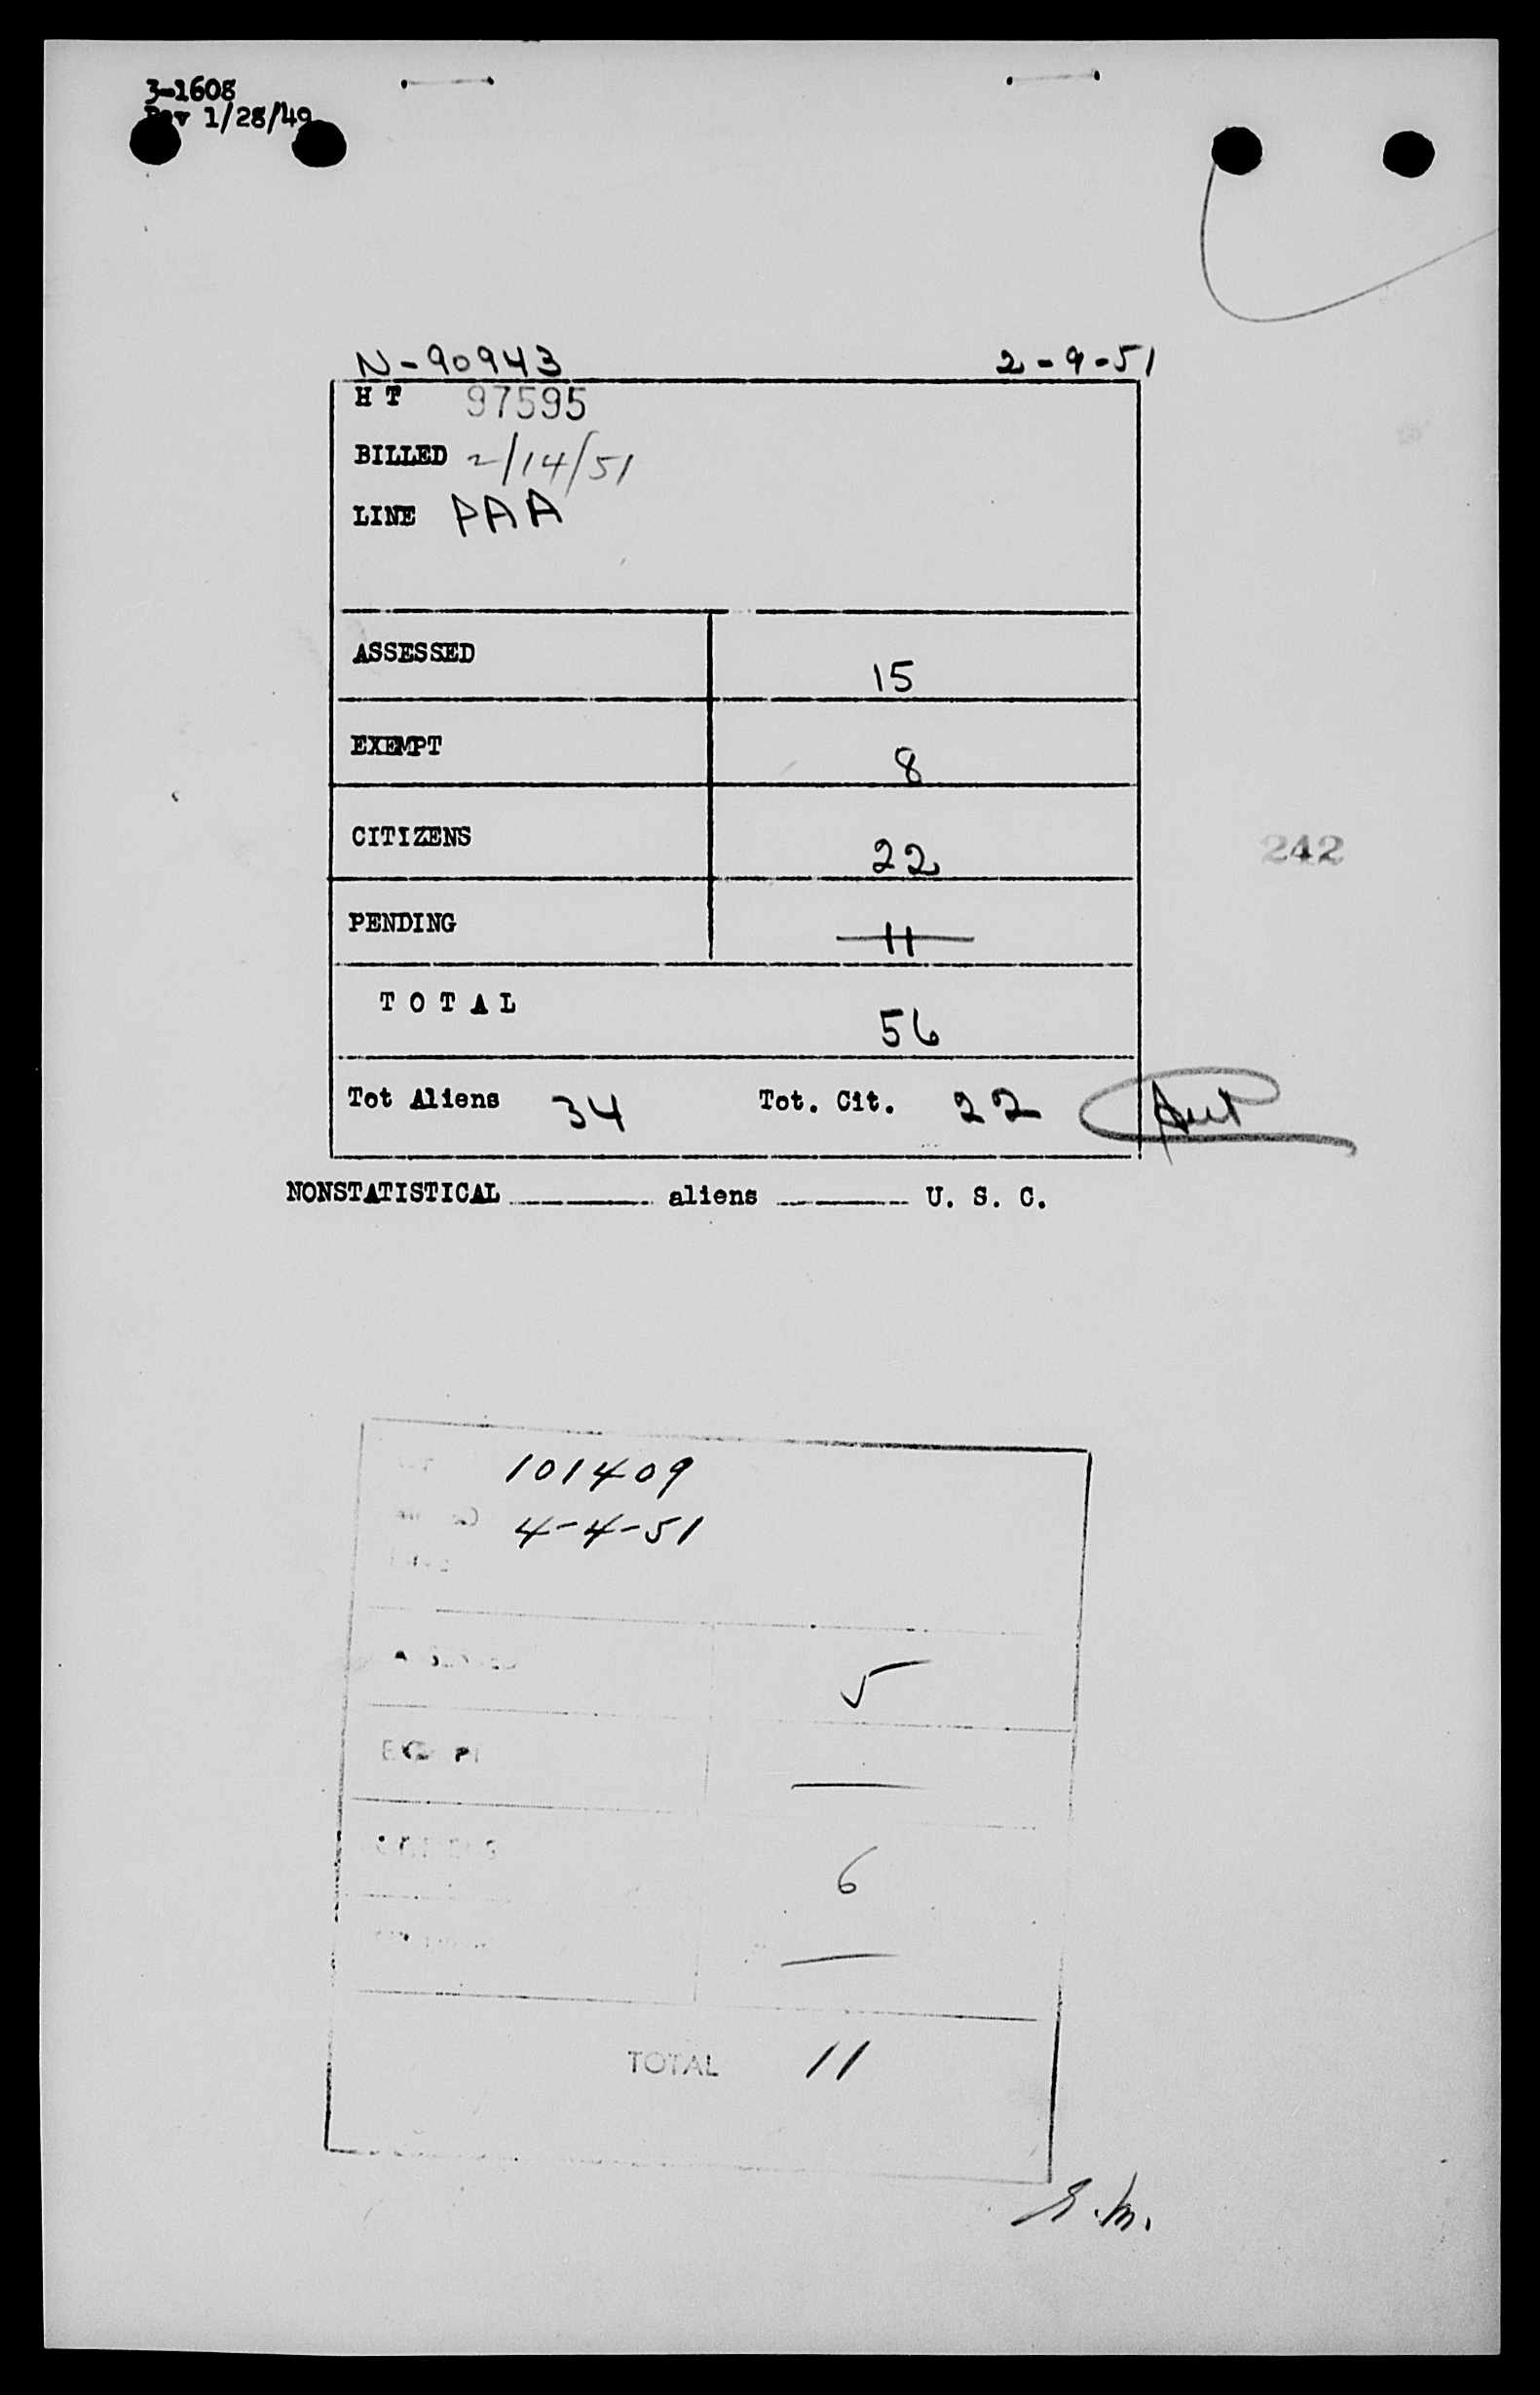 3-1608
Rev 1/28/49
N-90943 2-9-51
H T 97595
BILLED 2/14/51
LINE PAA
ASSESSED 15
EXEMPT 8
CITIZENS 22
242
PENDING 11
T O T A L 56
Tot Aliens 34 Tot. Cit. 22
NONSTATISTICAL aliens U. S. C.
101409
4-4-51
5
6
TOTAL 11